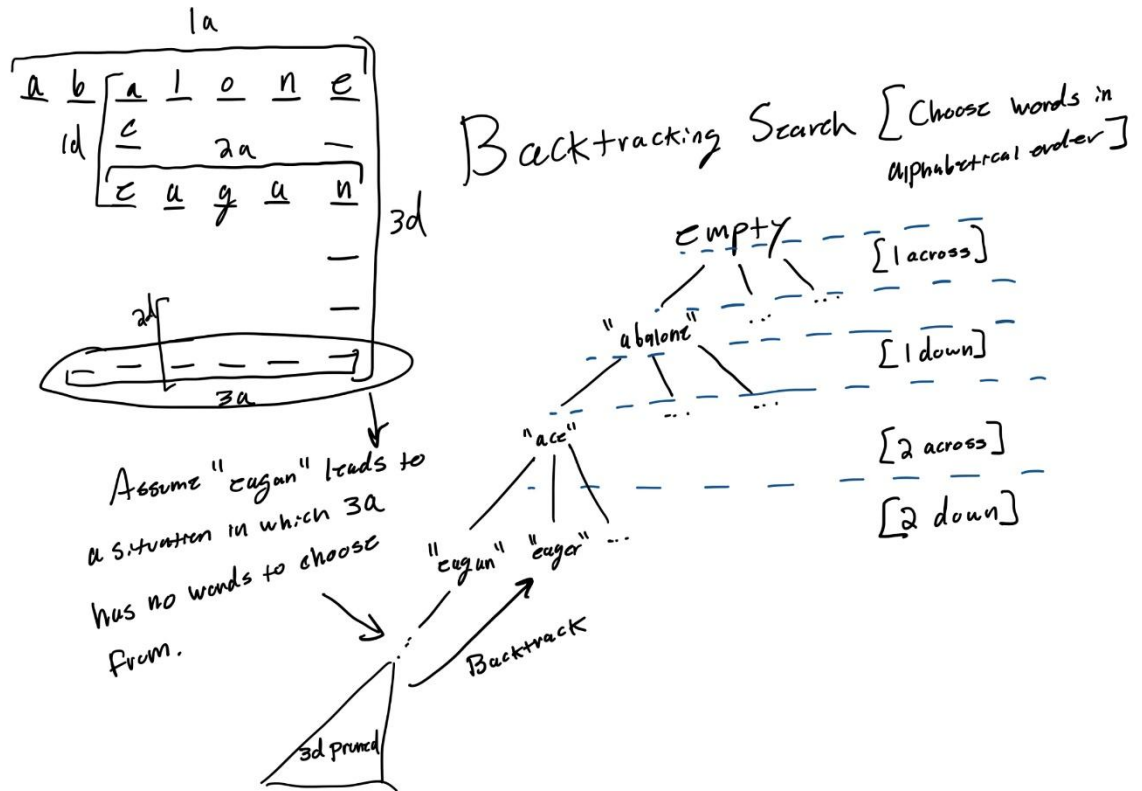 1a
a b a l o n e
1d
c
2a
e a g a n
3d
2d
3a
Backtracking Search [Choose words in
alphabetical order]
empty
[1 across]
... ...
"abalone"
[1 down]
... ...
"ace"
[2 across]
[2 down]
"eagan" "eager" ...
Assume "eagan" leads to
a situation in which 3a
has no words to choose
from.
...
Backtrack
3d pruned